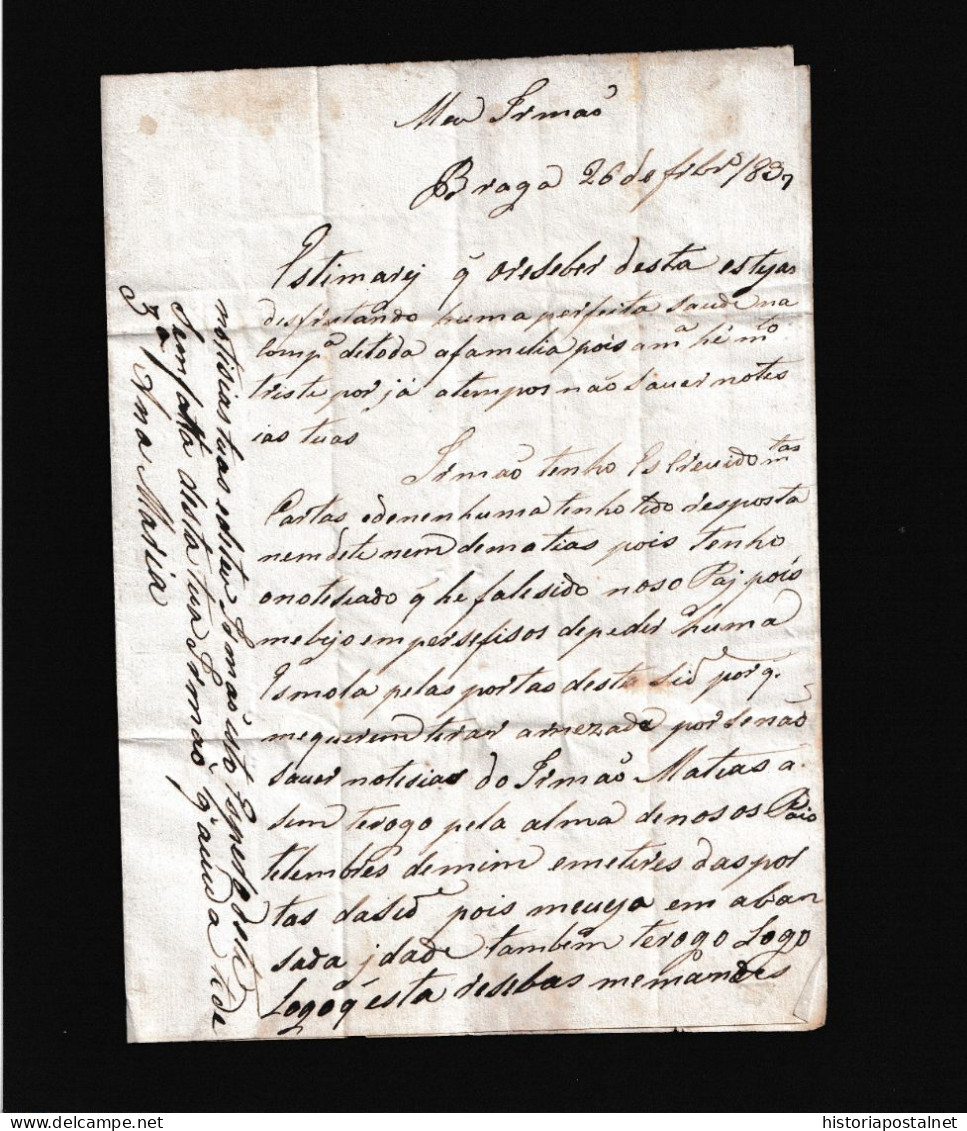 Meu Irmaõ
Braga 26 de febr.º 1837
Estimarej q̃ o reseber desta estejas
desfrutando huma perfeita saude na
Comp.ª de toda a familia pois a m.ª hé m.to
triste por já a tempos não saver notes
ias tuas
Irmaõ tenho Escrevido m.tas
Cartas e de nenhuma tenho tido resposta
nem de te nem de matias pois tenho
o notisiado q̃ he falesido noso Paj pois
me bijo em persefisos de peder huma
Esmola pelas portas desta Sid.e porq.
me querem terar a mezada por se naõ
saver notesias do Irmaõ Mateas a
sim te rogo pela alma de nosos Pais
te lembres de mim e me tires das por
tas da Sid.e pois me veja em avan
sada jdade tambem te rogo Logo
Logo q̃ esta resebas me mandes
notisias tuas e do teu Irmaõ isto Espero
Sem falta desta tua Irmaõ q̃
Anna Maria
historiapostalnet